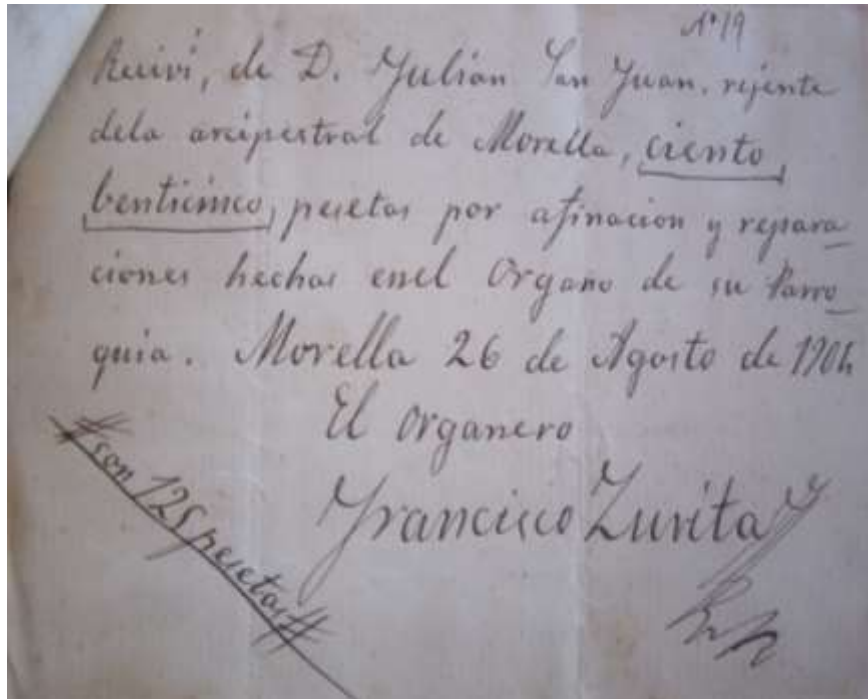 Nº 19
Recivi, de D. Julian San Juan, rejente
dela arcipestral de Morella, ciento
benticinco, pesetas por afinacion y repara_
ciones hechas enel Organo de su Parro_
quia. Morella 26 de Agosto de 1904
El Organero
#son 125 pesetas#
Francisco Zurita